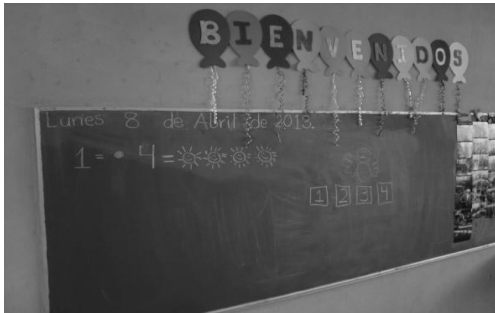 BIENVENIDOS
Lunes 8 de Abril de 2013.
1 = 4 =
1 2 3 4